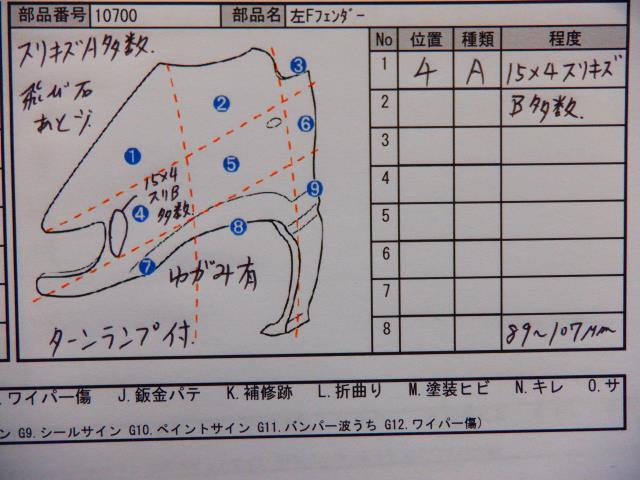 部品番号 10700 部品名 左Fﾌｪﾝﾀﾞｰ
スリキズA多数.
飛び石
あと少.
15×4
スリB
多数
ゆがみ有
ターンランプ付.
1 2 3 4 5 6 7 8 9
No 位置 種類 程度
1 4 A 15×4スリキズ
2 B多数.
3
4
5
6
7
8 89~107μm
.ワイパー傷 J.鈑金パテ K.補修跡 L.折曲り M.塗装ヒビ N.キレ O.サ
ン G9.シールサイン G10.ペイントサイン G11.バンパー波うち G12.ワイパー傷)